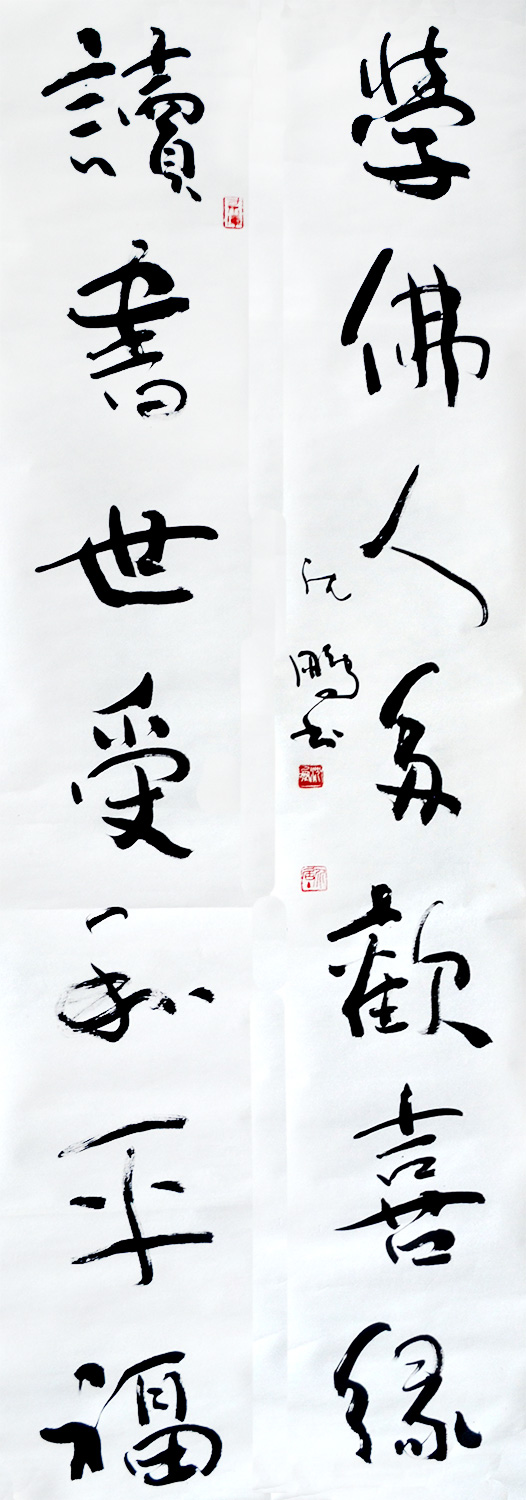 讀書世受和平福
學佛人多歡喜緣
沈鵬书